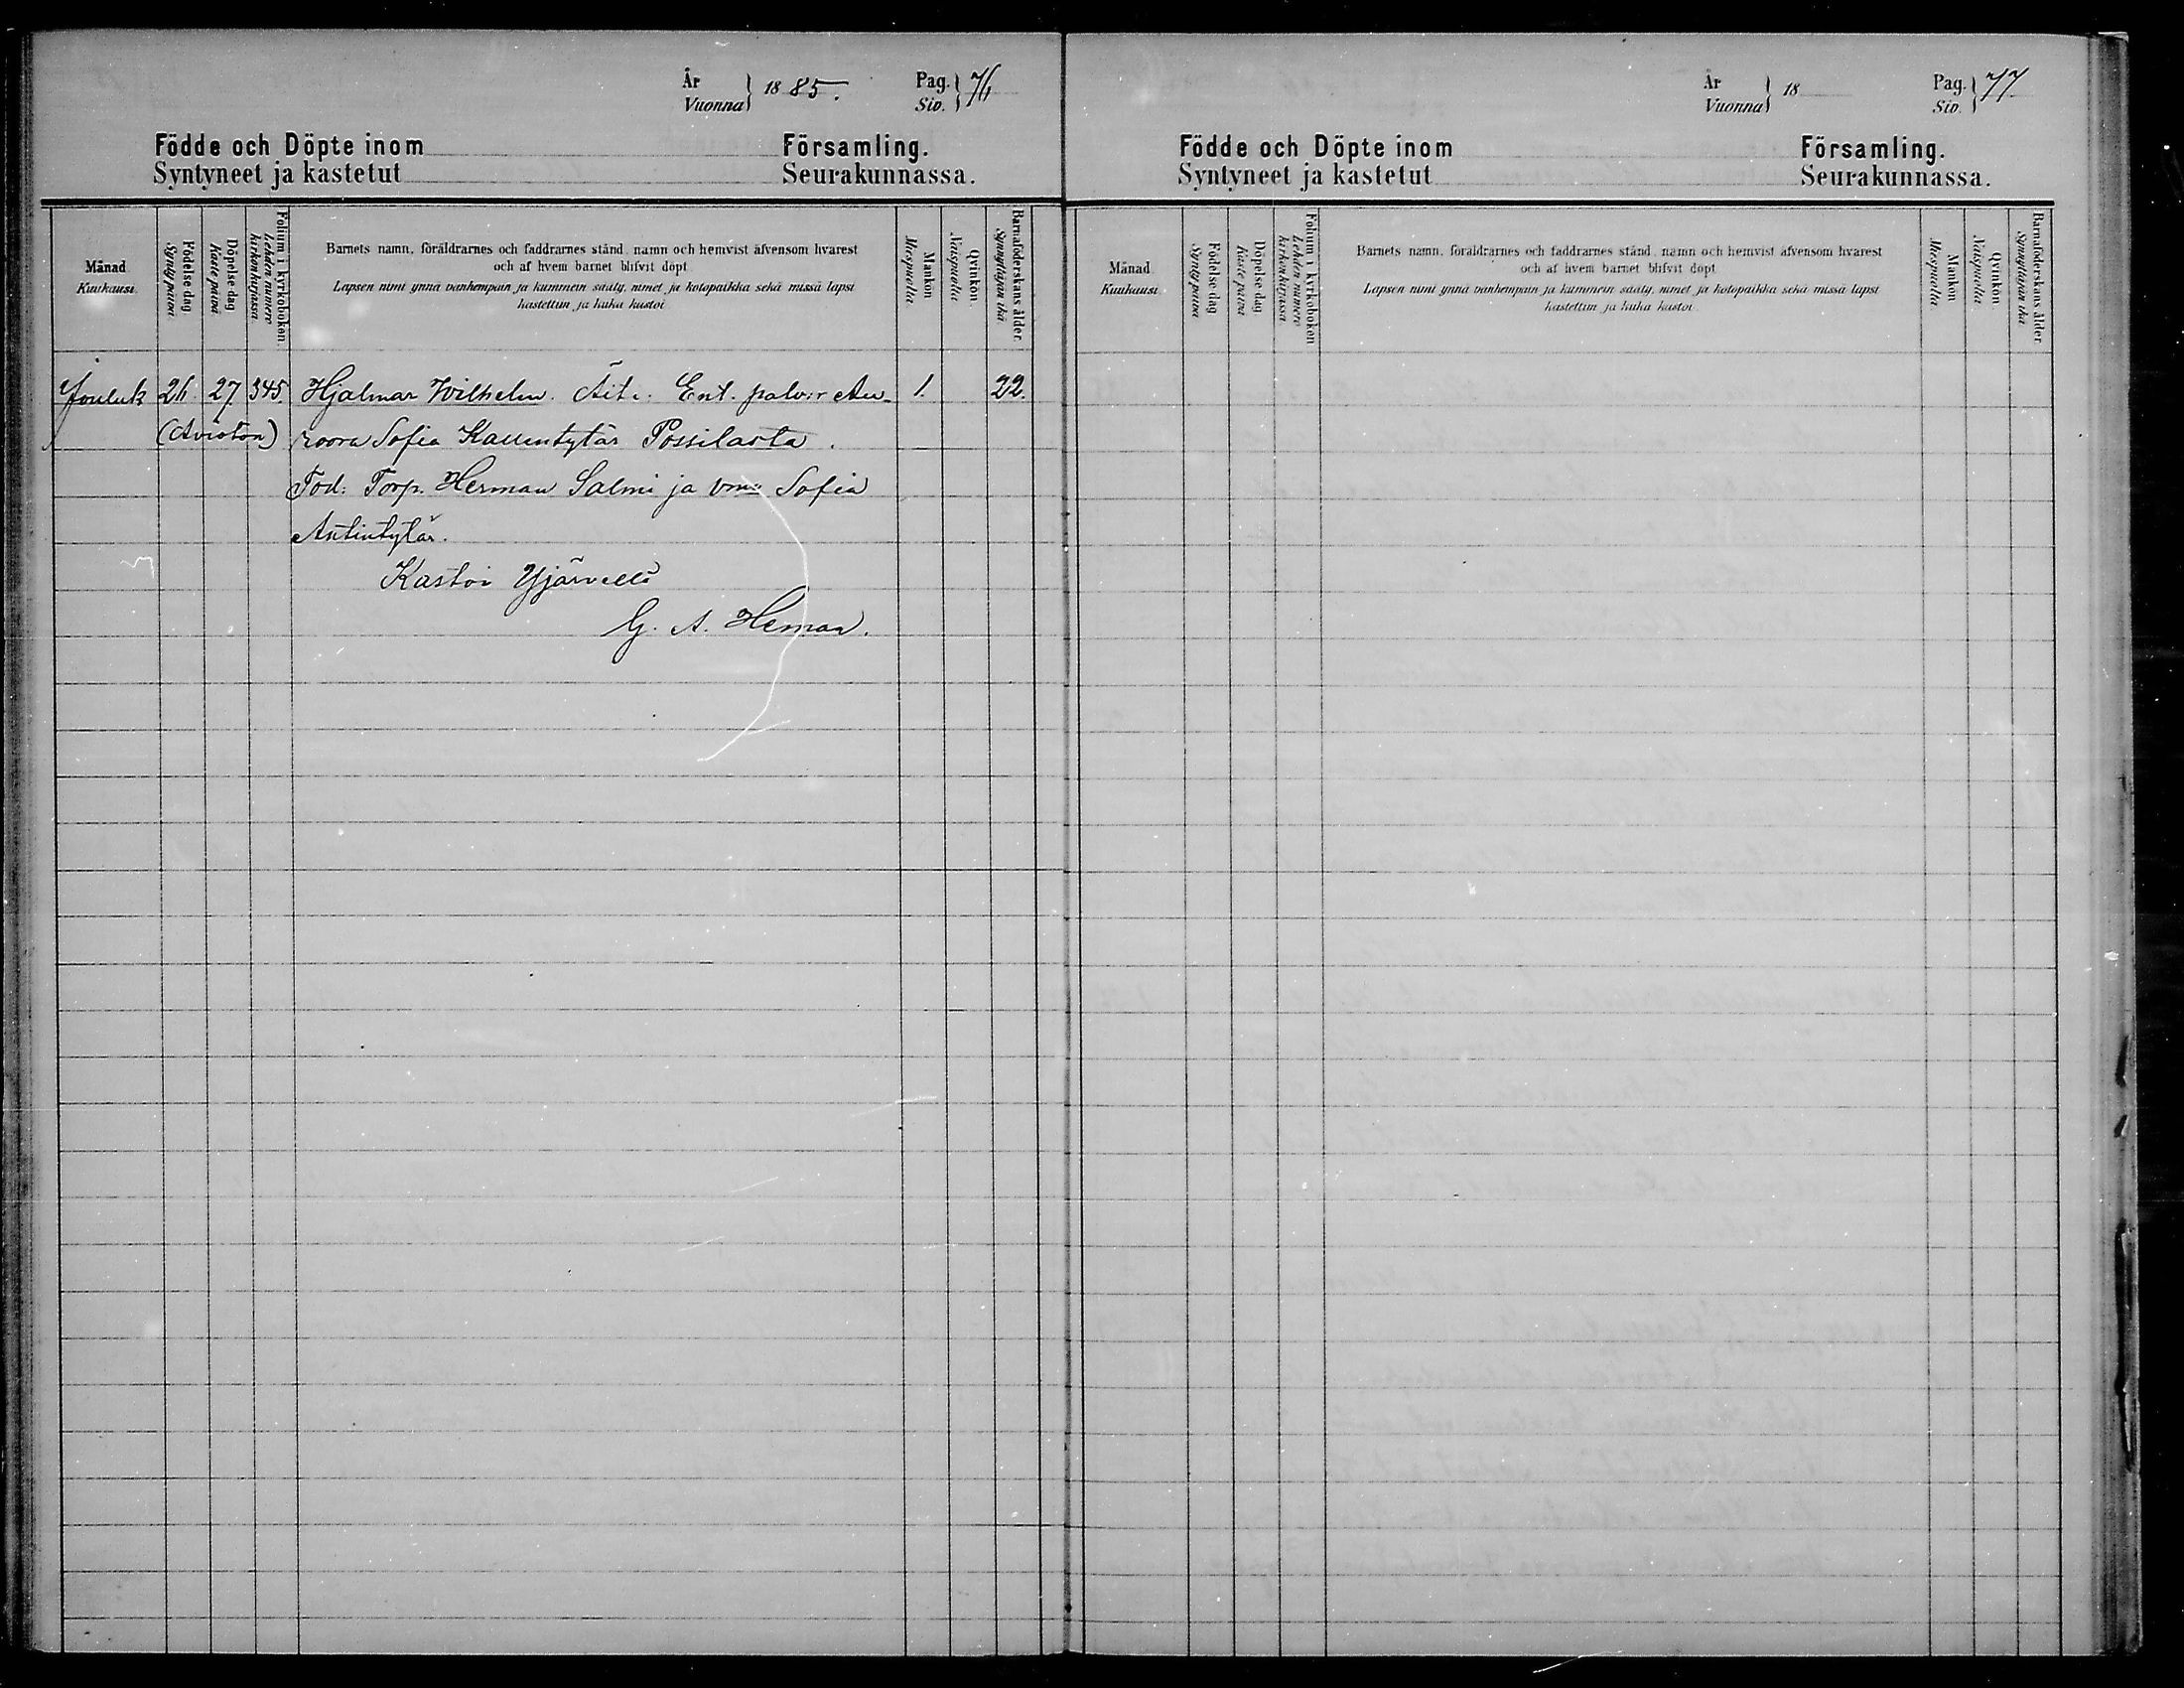 År
Vuonna } 18 85.
Pag.
Siv. } 76
Födde och Döpte inom Församling.
Syntyneet ja kastetut Seurakunnassa.
Månad
Kuukausi.
Födelse dag
Synty päivä.
Döpelse dag
Kaste päivä
Folium i kyrkoboken.
Lehden numero
kirkonkirjassa.
Barnets namn, föräldrarnes och faddrarnes stånd, namn och hemvist äfvensom hvarest
och af hvem barnet blifvit döpt
Lapsen nimi ynnä vanhempain ja kummein sääty, nimet ja kotopaikka sekä missä lapsi
kastettiin ja kuka kastoi.
Mankön
Miespuolia
Qvinkön
Naispuolia
Barnaföderskans ålder.
Synnyttäjän ikä.
Jouluk 26 27 345. Hjalmar Wilhelm. Äit.: Ent. palv:r Au- 1. 22.
(Avioton) roora Sofia Kallentytär Possilasta.
Tod: Torp. Herman Salmi ja vmo Sofia
Antintytär.
Kastoi Yjärvellä
G. A. Heman.
År
Vuonna } 18
Pag.
Siv. } 77
Födde och Döpte inom Församling.
Syntyneet ja kastetut Seurakunnassa.
Månad
Kuukausi.
Födelse dag
Synty päivä
Döpelse dag
Kaste päivä
Folium i kyrkoboken
Lehden numero
kirkonkirjassa.
Barnets namn, föräldrarnes och faddrarnes stånd, namn och hemvist äfvensom hvarest
och af hvem barnet blifvit döpt
Lapsen nimi ynnä vanhempain ja kummein sääty, nimet ja kotopaikka sekä missä lapsi
kastettiin ja kuka kastoi.
Mankön
Miespuolia.
Qvinkön.
Naispuolia
Barnaföderskans ålder.
Synnyttäjän ikä